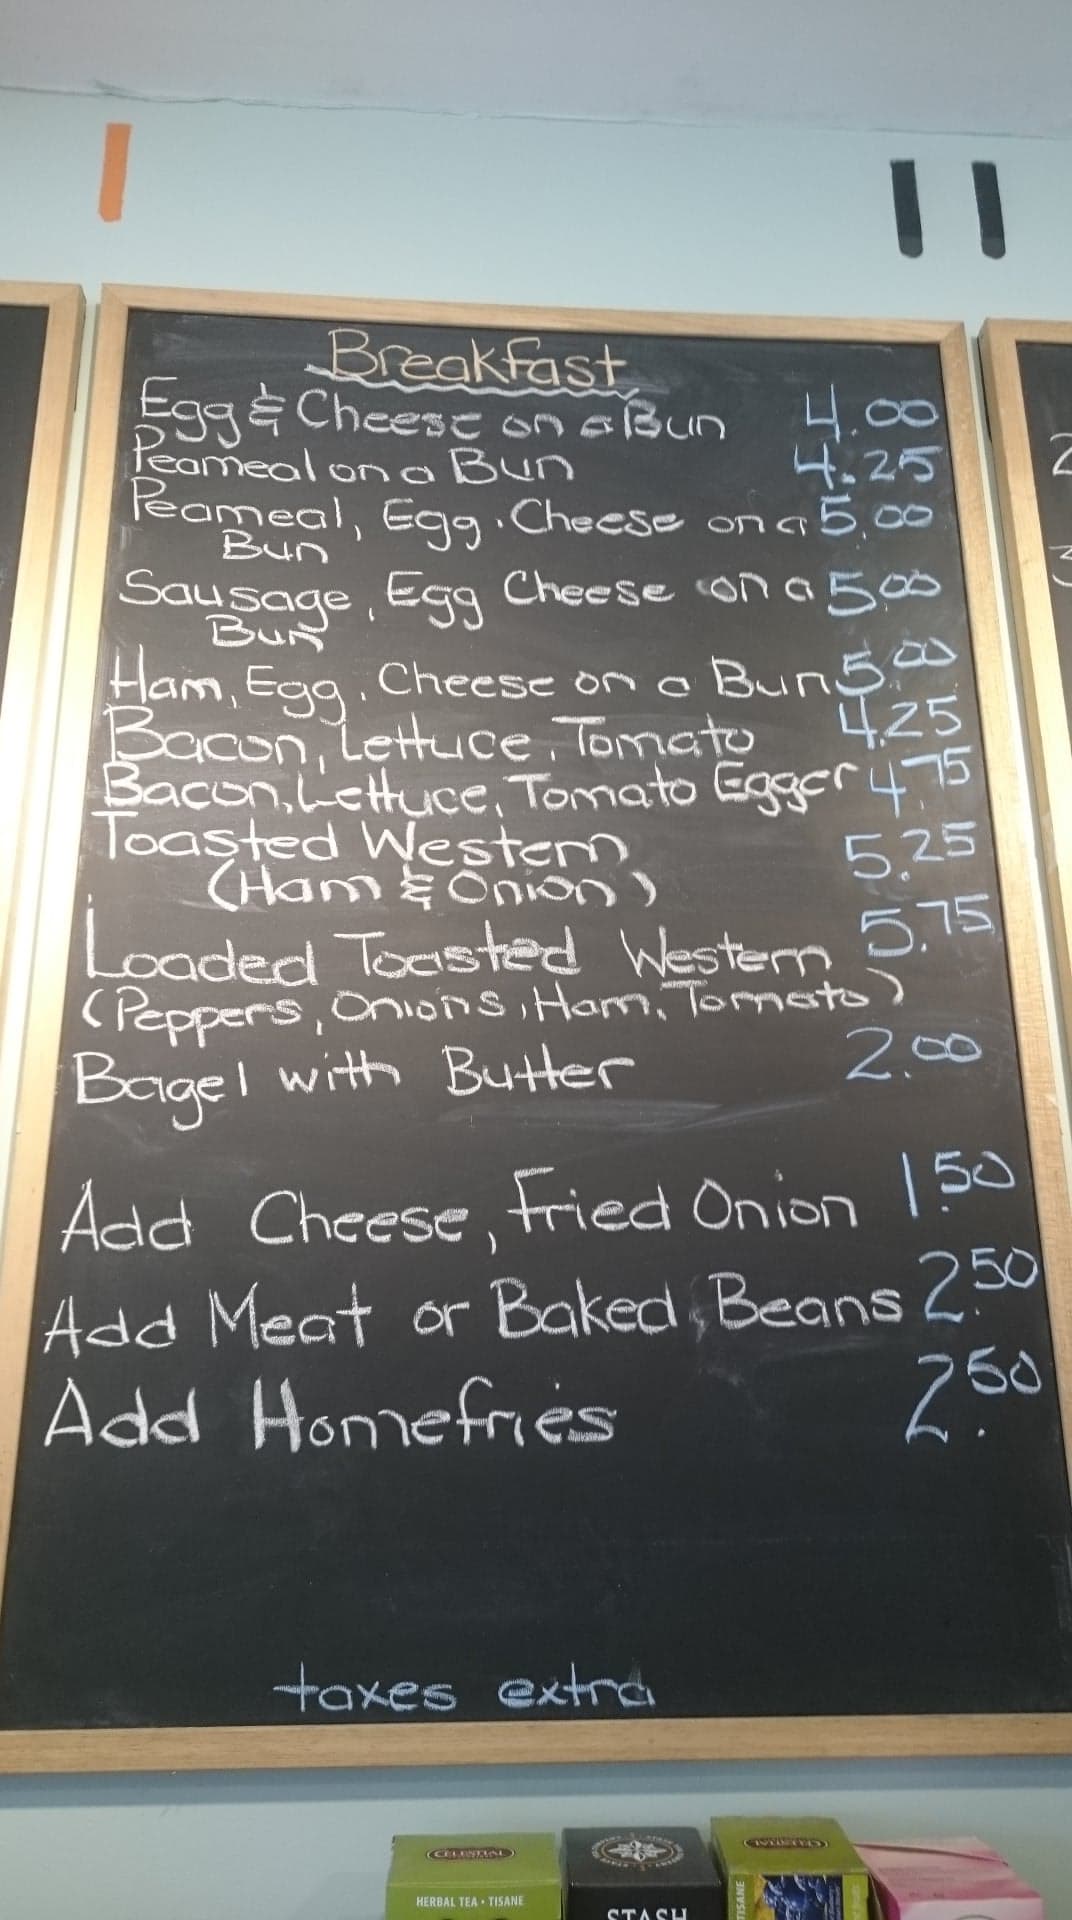 Breakfast
Egg & Cheese on a Bun 4.00
Peameal on a Bun 4.25
Peameal, Egg, Cheese on a 5.00
Bun
Sausage, Egg Cheese on a 5.00
Bun
Ham, Egg, Cheese on a Bun 5.00
Bacon, Lettuce, Tomato 4.25
Bacon, Lettuce, Tomato Egger 4.75
Toasted Western 5.25
(Ham & Onion)
Loaded Toasted Western 5.75
(Peppers, Onions, Ham, Tomato)
Bagel with Butter 2.00
Add Cheese, Fried Onion 1.50
Add Meat or Baked Beans 2.50
Add Homefries 2.50
taxes extra
2
3
CELESTIAL
HERBAL TEA • TISANE
STASH
CELESTIAL
TISANE